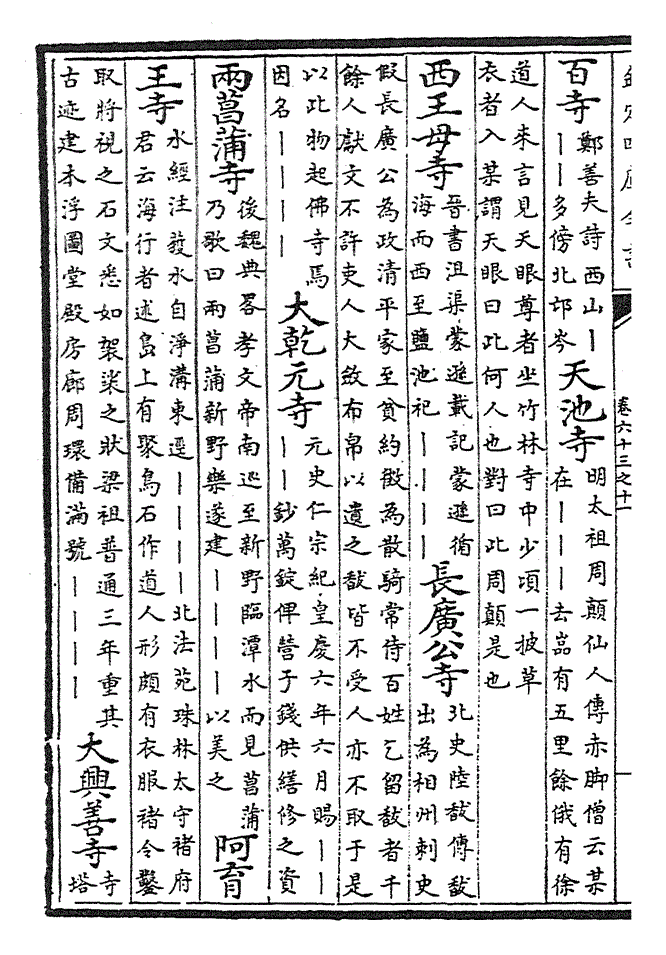 卷六十三之十一
百寺
鄭善夫詩西山｜
｜｜多傍北邙岑
天池寺
明太祖周顛仙人傳赤脚僧云某
在｜｜｜去嵓有五里餘俄有徐
道人來言見天眼尊者坐竹林寺中少頃一披草
衣者入某謂天眼曰此何人也對曰此周顛是也
西王母寺
晉書沮渠蒙遜載記蒙遜循
海而西至鹽池祀｜｜｜｜
長廣公寺
北史陸馛傳馛
出為相州刺史
假長廣公為政清平家至貧約徵為散騎常侍百姓乞留馛者千
餘人獻文不許吏人大斂布帛以遺之馛皆不受人亦不取于是
以此物起佛寺焉
因名｜｜｜｜
大乾元寺
元史仁宗紀皇慶六年六月賜｜｜
｜｜鈔萬錠俾營子錢供繕修之資
兩菖蒲寺
後魏典畧孝文帝南巡至新野臨潭水而見菖蒲
乃歌曰兩菖蒲新野樂遂建｜｜｜｜以美之
阿育
王寺
水經注發水自淨溝東逕｜｜｜｜北法苑珠林太守褚府
君云海行者述島上有聚鳥石作道人形頗有衣服褚令鑿
取將視之石文悉如袈裟之狀梁祖普通三年重其
古迹建木浮圖堂殿房廊周環備滿號｜｜｜｜
大興善寺
寺
塔